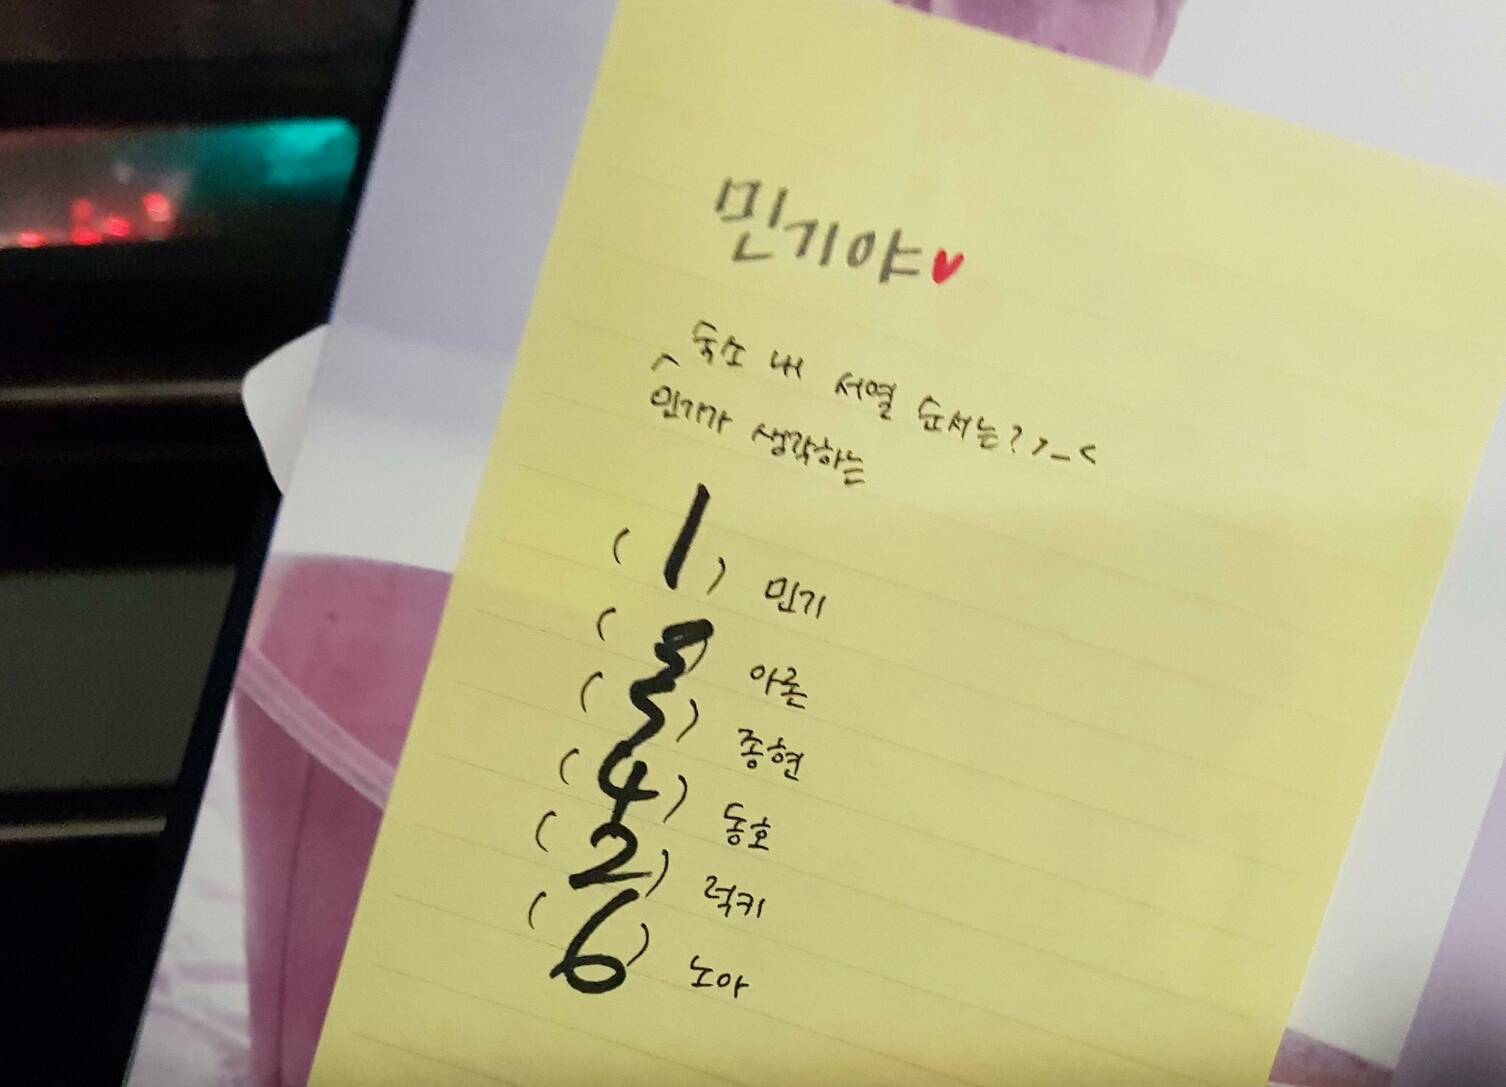 민기야♥
숙소 내 서열 순서는? >_<
^
민기가 생각하는
( 1 ) 민기
( ) 아론
( ) 종현
( 4 ) 동호
( 2 ) 럭키
( 6 ) 노아